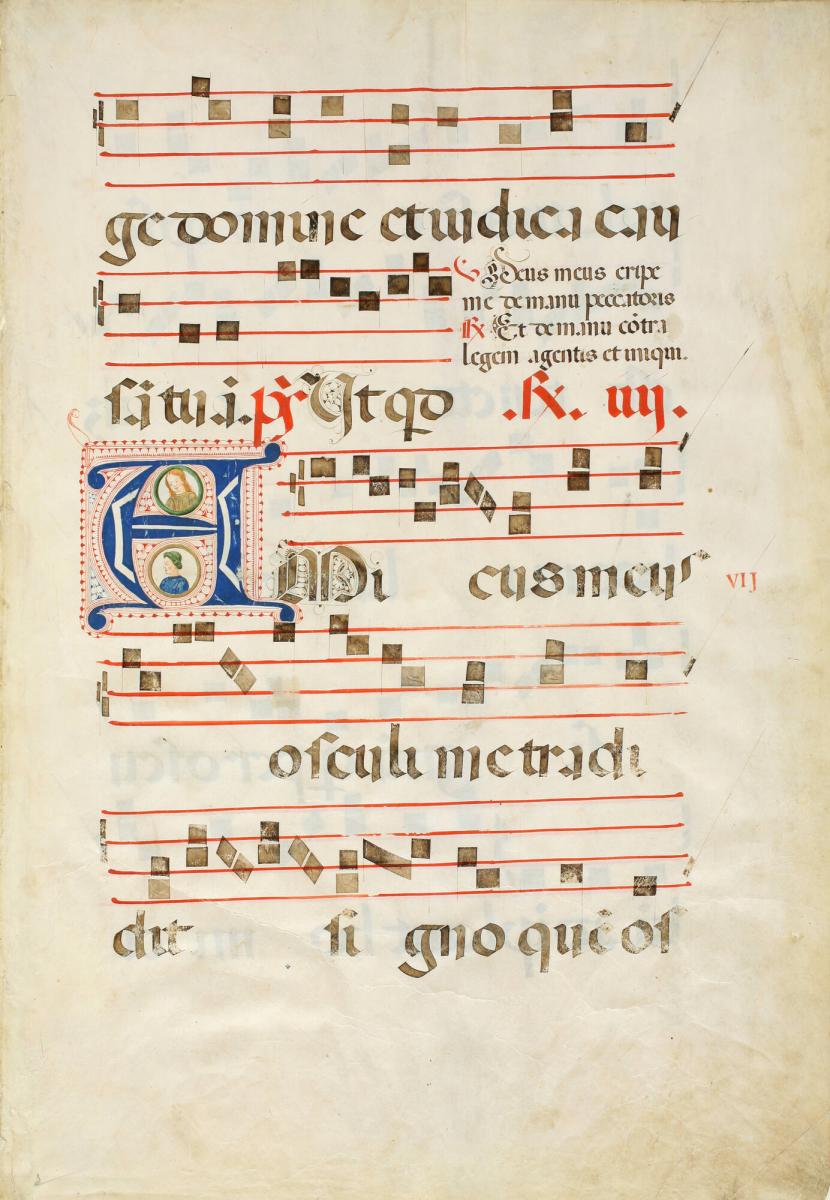 ge domine et iudica cau
℣ Deus meus eripe
me de manu peccatoris
℟ Et de manu cōtra
legem agentis et iniqui.
sā tuā. ps Ut qd .℟. iiij.
AMicus meus
VIJ
osculi me tradi
dit si gno quē os